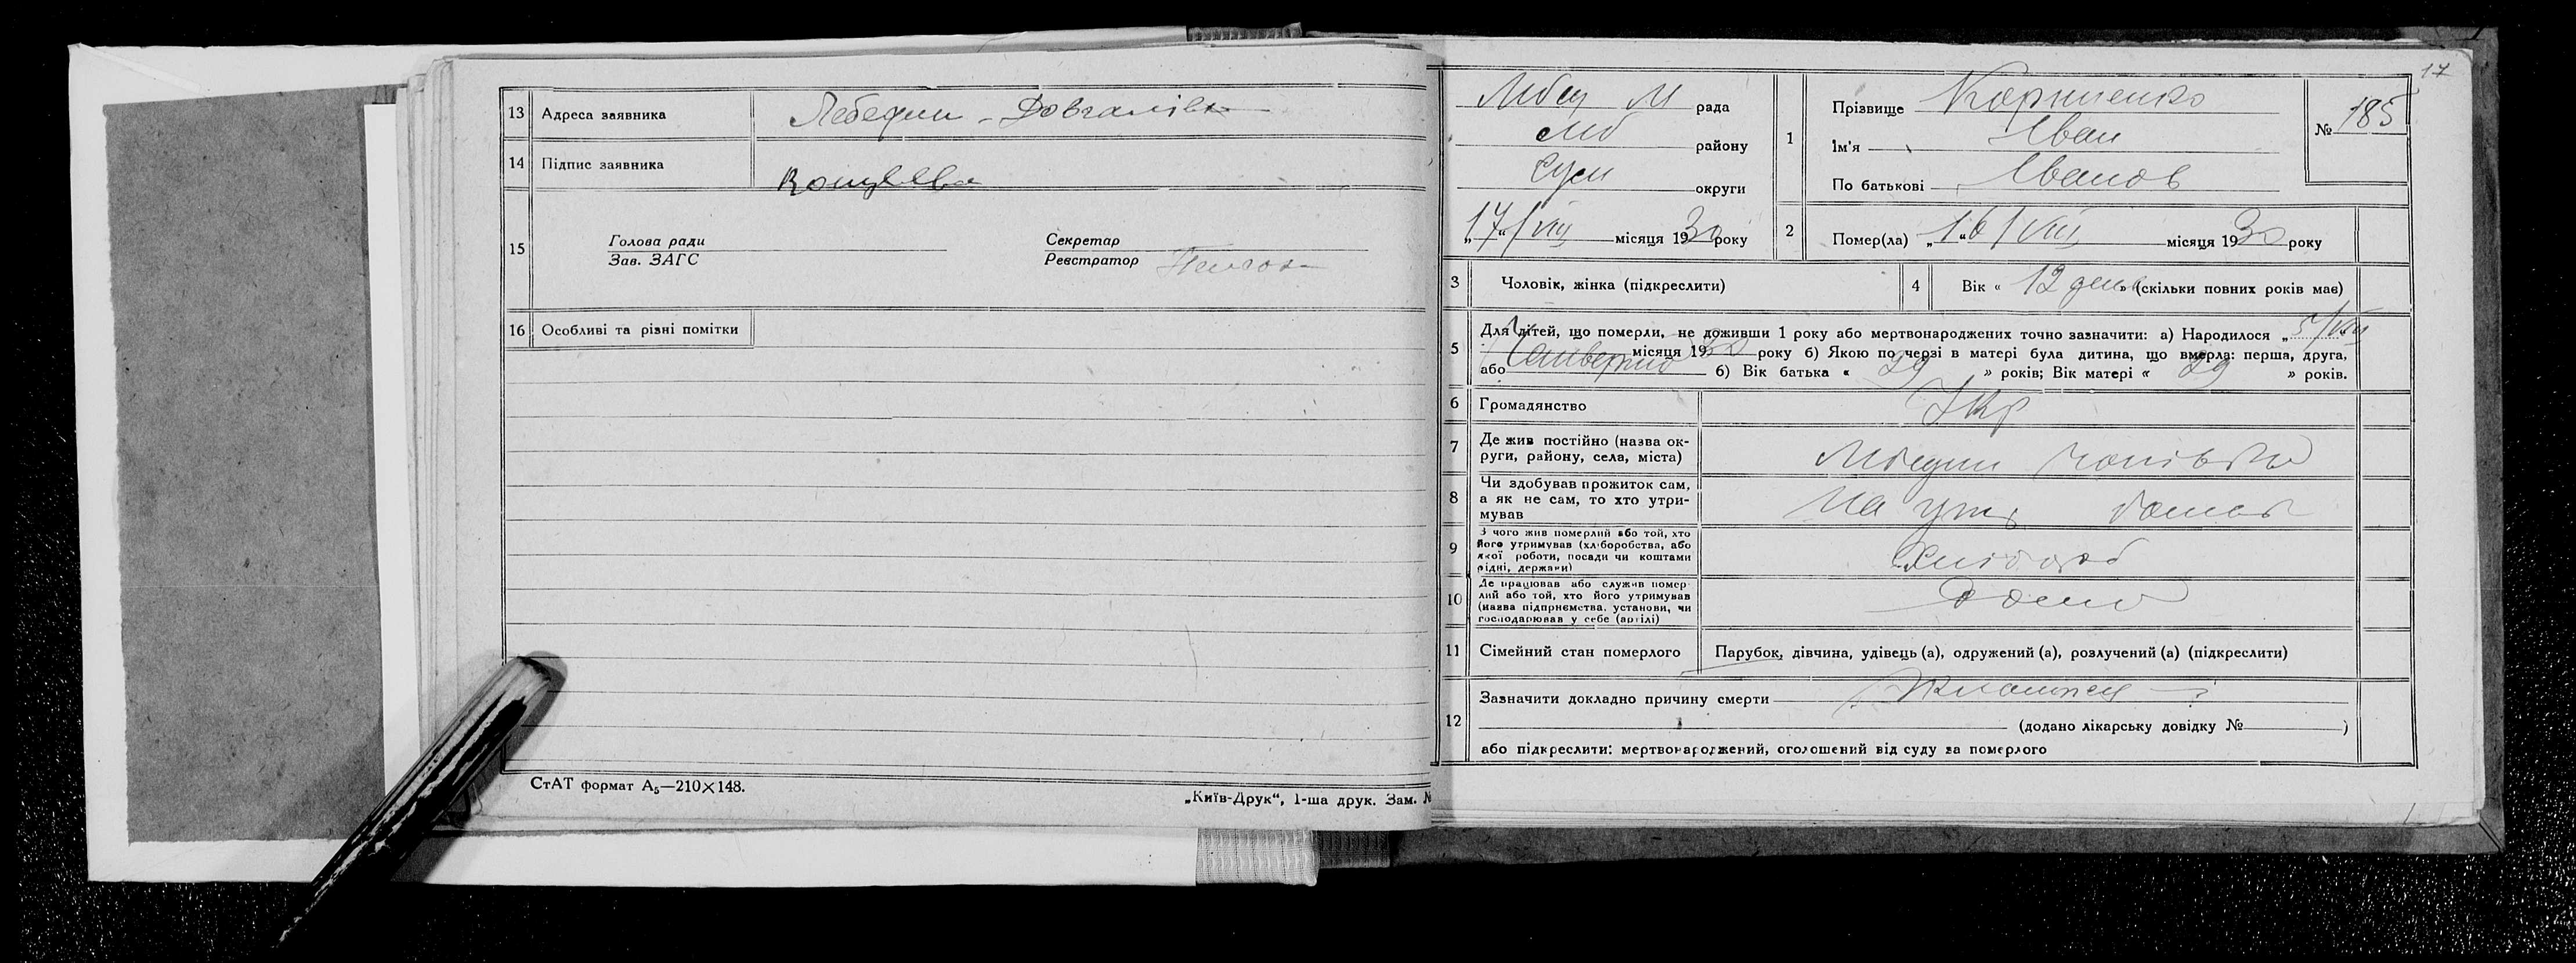 13 Адреса заявника Лебедин - Довгалівк
14 Підпис заявника
15 Голова ради
Зав. ЗАГС
Секретар
Реєстратор
16 Особливі та різні помітки
СтАТ формат А5—210×148.
„Київ-Друк“, 1-ша друк. Зам. №
17
рада
району
Сум округи
„17“/VIII місяця 1930 року
1 Прізвище Корниенко
Ім'я Иван
По батькові Иванов
№ 185
2 Помер(ла) „16“/VIII місяця 1930 року
3 Чоловік, жінка (підкреслити)
4 Вік « 12 день » (скільки повних років має)
5 Для дітей, що померли, не доживши 1 року або мертвонароджених точно зазначити: а) Народилося „5/VIII
місяця 1930 року б) Якою по черзі в матері була дитина, що вмерла: перша, друга,
або Четвертно б) Вік батька « 29 » років; Вік матері « 29 » років.
6 Громадянство Укр
7 Де жив постійно (назва ок-
руги, району, села, міста)
8 Чи здобував прожиток сам,
а як не сам, то хто утри-
мував
На утр батьк
9 З чого жив померлий або той, хто
його утримував (хліборобства, або
якої роботи, посади чи коштами
рідні, держави)
Хлібороб
10 Де працював або служив помер-
лий або той, хто його утримував
(назва підприємства, установи, чи
господарював у себе (артілі)
Дома
11 Сімейний стан померлого Парубок, дівчина, удівець (а), одружений (а), розлучений (а) (підкреслити)
12 Зазначити докладно причину смерти
(додано лікарську довідку № )
або підкреслити: мертвонароджений, оголошений від суду за померлого